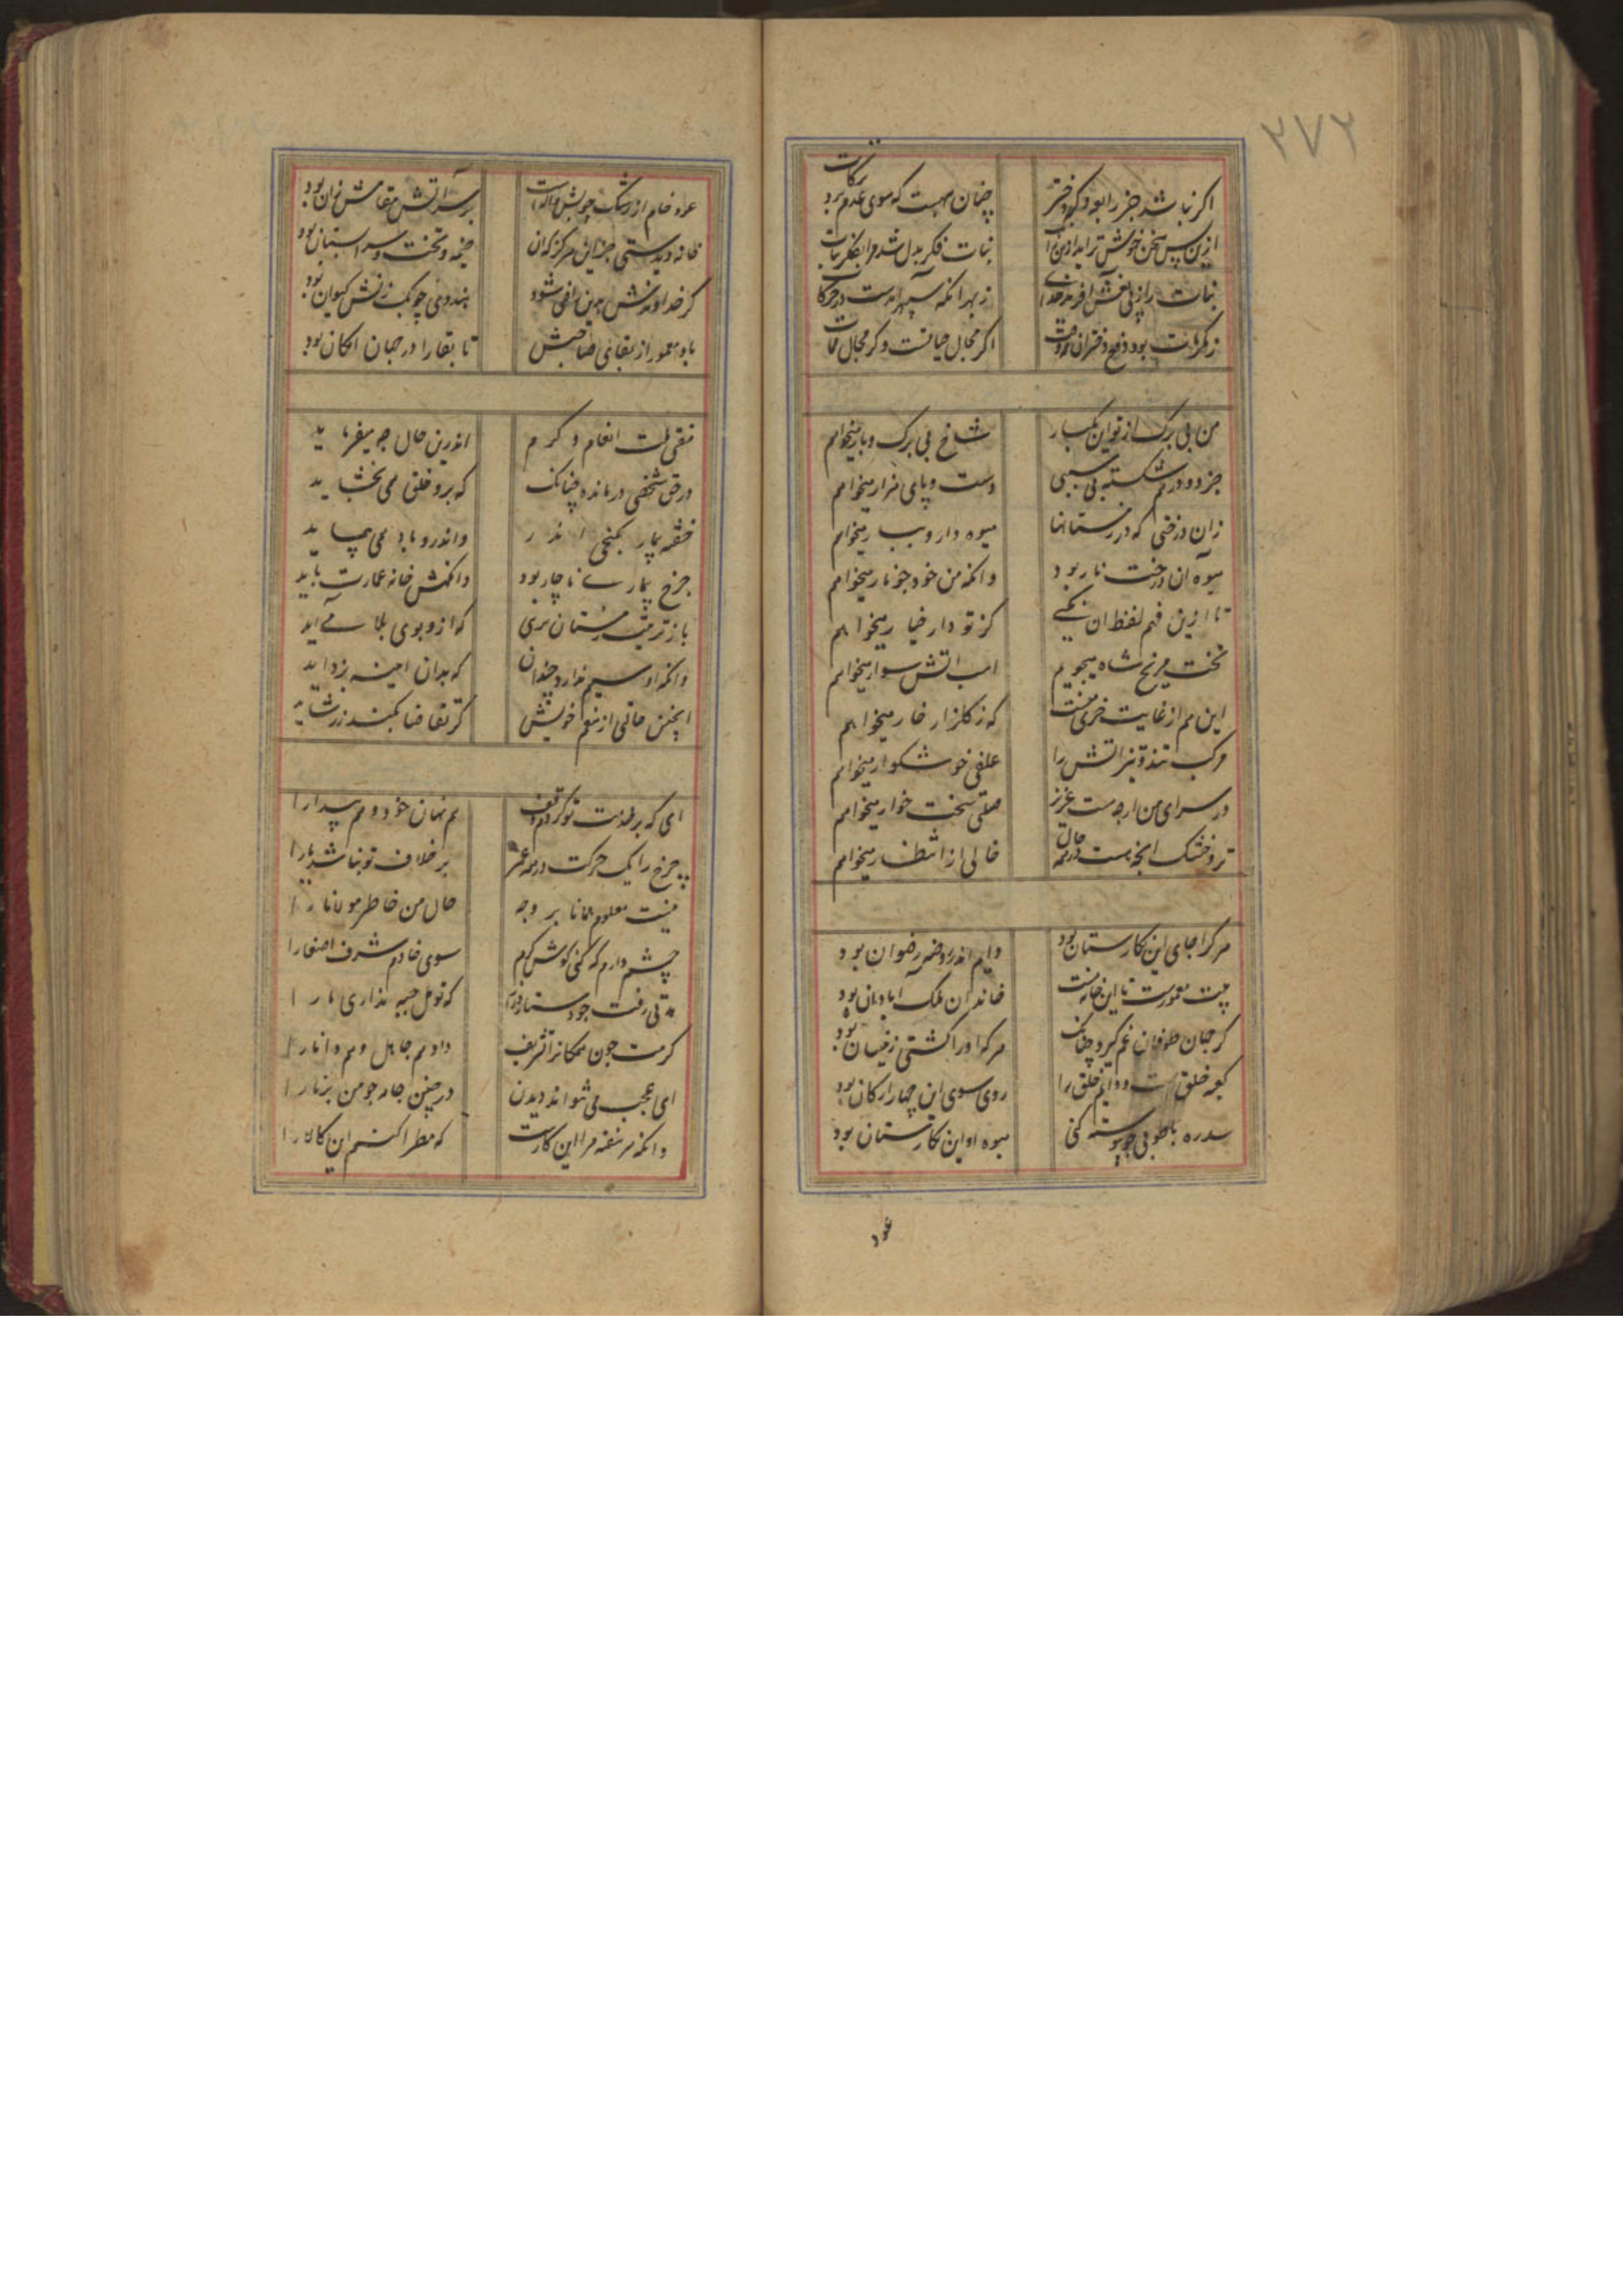 ۲۷۲
اگر نباشد جز رابعه دگر دختر
چنان بهست که سوی عدم برد نکبات
ازین سپس سخن خوش
بنات فکر بدل شد مرا بفکر بنات
بنات را ز پی نعش آفرید خدای
ز بهر آنکه سپهر است در حرکات
ز مکرمات بود دفن دختران
اگر مجال حیاتست و گر مجال ممات
من بی برک از تو ان یکبار
شاخ بی برک و بار میخواهم
جز دو در شکسته بی سببی
دست و پای نزار میخواهم
زان درختی که در زمستانها
میوه دارو ببار میخواهم
میوه آن درخت نار بود
وانکه من خود جو نار میخواهم
تا ازین فهم لفظ ان نکنی
کز تو دار خیار میخواهم
تخت مریخ شاه میجویم
اسب اتش سوار میخواهم
این هم از غایت خری منست
که ز کلزار خار میخواهم
مرکب تند و تیز اتش را
علفی خوشکوار میخواهم
در سرای من ارچه هست عزیز
صلتی سخت خوار میخواهم
تر و خشک انچه هست در همه حال
خالی از انتظار میخواهم
هر کرا جای این کارستان بود
دایم اندر روضه رضوان بود
بیت معمورست تا این خانه هست
خاندان ملک آبادان بود
کر جهان طوفان غم کیرد چنانک
هر که او را کشتی زنسان بود
کعبه خلق است و دایم خلق را
روی سوی این چهار ارکان بود
سدره با طوبی جو پیوسته کنی
میوه او این نکارستان بود
عود
عود خام از رشک چوبش
بر سر آتش مقامش زان بود
خانه دیدستی جز این هرکز که ان
خیمه و تخت و سراسستان بود
کر خداوندش بدین راضی شود
هندوی چوبک زنش کیوان بود
باد معمور از بقای صاحبش
تا بقا را در جهان امکان بود
مفتی ملت انعام و کرم
اندرین حال چه میفرماید
در حق شخصی درمانده چنانک
که برو خلق همی بخشاید
خفته بیمار بکنجی اندر
واندرو باد همی پیماید
خرج بیماری ناچار بود
وانکهش خانه عمارت باید
باز ترتیب زمستان بری
که ازو بوی بلا می آید
وانکه او سیم ندارد چندان
که بدان اینه بزداید
اینچنین حالی از منعم خویش
کر تقاضا بکند زر شاید
ای که بر خدمت تو کردم وقف
هم نهان خود و هم پیدا را
چرخ را یک حرکت در همه عمر
بر خلاف تو نباشد یارا
نیست معلوم همانا بر وجه
حال من خاطر مولانا را
چشم دارم که کنی کوش کرم
سوی خادم شرف اصغا را
مدتی رفت جو دستار
که تو مهمل جبه نذاری ما را
کرمت جون همکانرا تشریف
داد هم جاهل و هم دانا را
ای عجب می نتواند دیدن
در چنین جامه جو من برنا را
وانکه هر هفته مرا این کارست
که مطرا کنم این کالا را